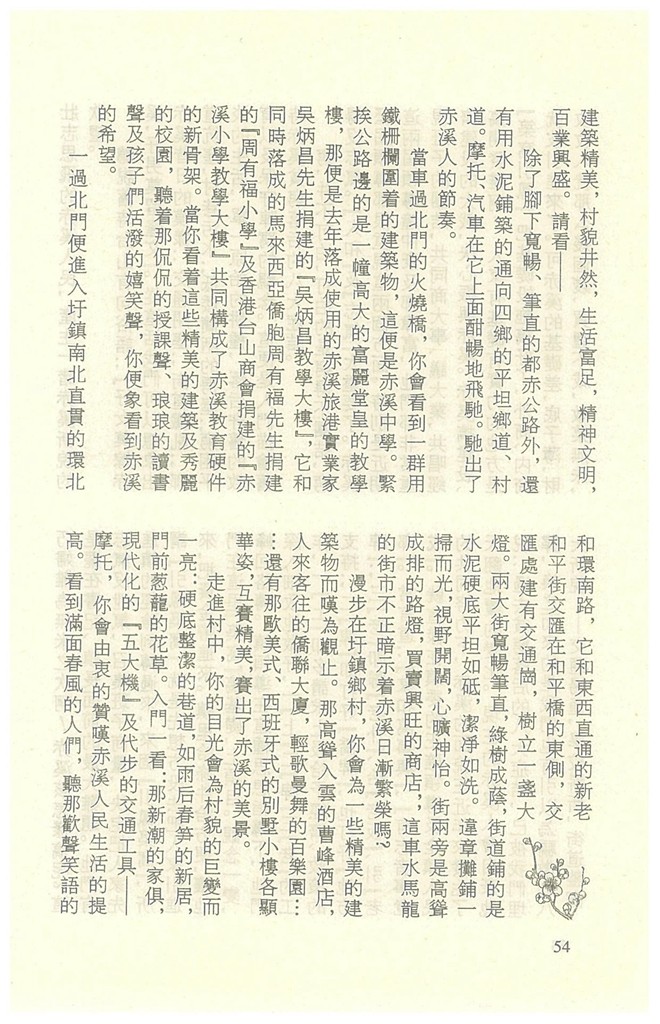 建築精美，村貌井然，生活富足，精神文明，
百業興盛。請看——
除了腳下寬暢、筆直的都赤公路外，還
有用水泥鋪築的通向四鄉的平坦鄉道、村
道。摩托、汽車在它上面酣暢地飛馳。馳出了
赤溪人的節奏。
當車過北門的火燒橋，你會看到一群用
鐵柵欄圍着的建築物，這便是赤溪中學。緊
挨公路邊的是一幢高大的富麗堂皇的教學
樓，那便是去年落成使用的赤溪旅港實業家
吳炳昌先生捐建的『吳炳昌教學大樓』，它和
同時落成的馬來西亞僑胞周有福先生捐建
的『周有福小學』及香港台山商會捐建的『赤
溪小學教學大樓』共同構成了赤溪教育硬件
的新骨架。當你看着這些精美的建築及秀麗
的校園，聽着那侃侃的授課聲、琅琅的讀書
聲及孩子們活潑的嬉笑聲，你便象看到赤溪
的希望。
一過北門便進入圩鎮南北直貫的環北
和環南路，它和東西直通的新老
和平街交匯在和平橋的東側，交
匯處建有交通崗，樹立一盞大
燈。兩大街寬暢筆直，綠樹成蔭，街道鋪的是
水泥硬底平坦如砥，潔凈如洗。違章攤鋪一
掃而光，視野開闊，心曠神怡。街兩旁是高聳
成排的路燈，買賣興旺的商店，，這車水馬龍
的街市不正暗示着赤溪日漸繁榮嗎？
漫步在圩鎮鄉村，你會為一些精美的建
築物而嘆為觀止。那高聳入雲的曹峰酒店，
人來客往的僑聯大廈，輕歌曼舞的百樂園…
…還有那歐美式、西班牙式的別墅小樓各顯
華姿，互賽精美，賽出了赤溪的美景。
走進村中，你的目光會為村貌的巨變而
一亮：硬底整潔的巷道，如雨后春笋的新居，
門前葱蘢的花草。入門一看：那新潮的家俱，
現代化的『五大機』及代步的交通工具——
摩托，你會由衷的贊嘆赤溪人民生活的提
高。看到滿面春風的人們，聽那歡聲笑語的
54